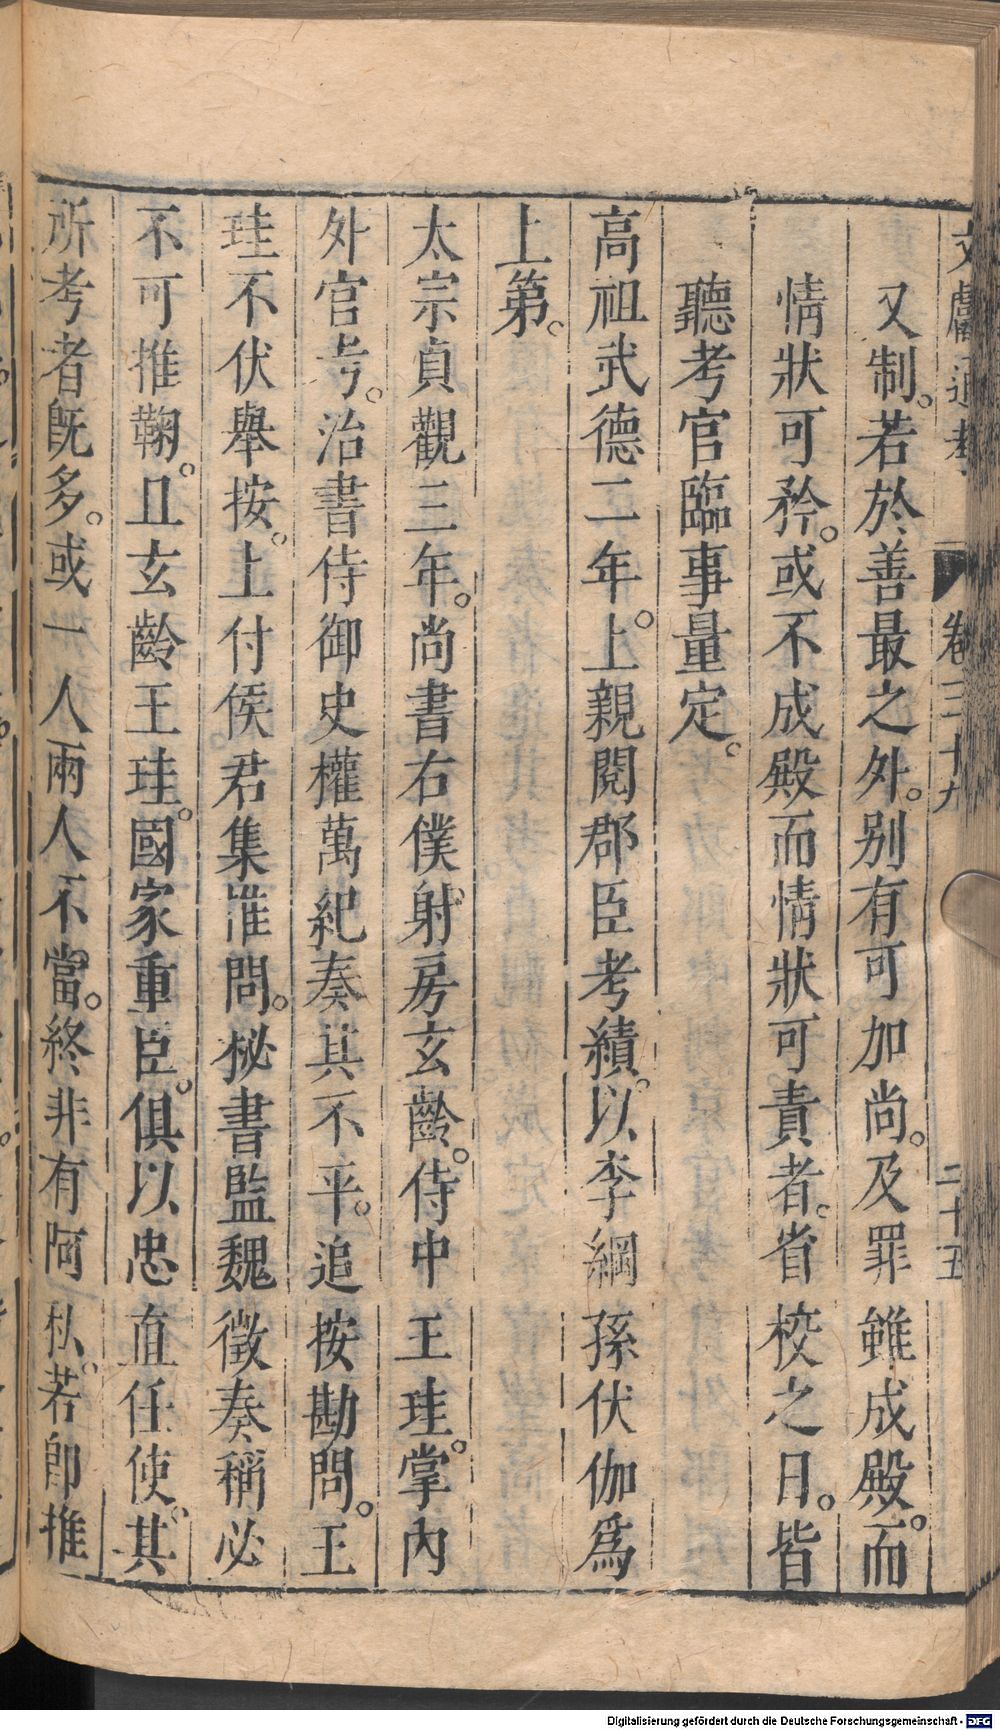 文獻通考 卷三十九 二十五
又制。若於善最之外。别有可加尚。及罪雖成殿。而
情狀可矜。或不成殿而情狀可責者。省校之日。皆
聽考官臨事量定。
高祖武德二年。上親閱郡臣考績。以李綱孫伏伽爲
上第。
太宗貞觀三年。尚書右僕射。房玄齡。侍中王珪。掌內
外官考。治書侍御史權萬紀奏其不平。追按勘問。王
珪不伏舉按。上付侯君集推問。祕書監魏徵奏稱必
不可推鞠。且玄齡王珪。國家重臣。俱以忠直任使。其
所考者既多。或一人兩人不當。終非有阿私。若即推
Digitalisierung gefördert durch die Deutsche Forschungsgemeinschaft - DFG